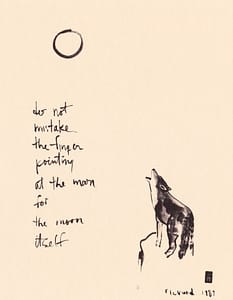 do not
mistake
the finger
pointing
at the moon
for
the moon
itself